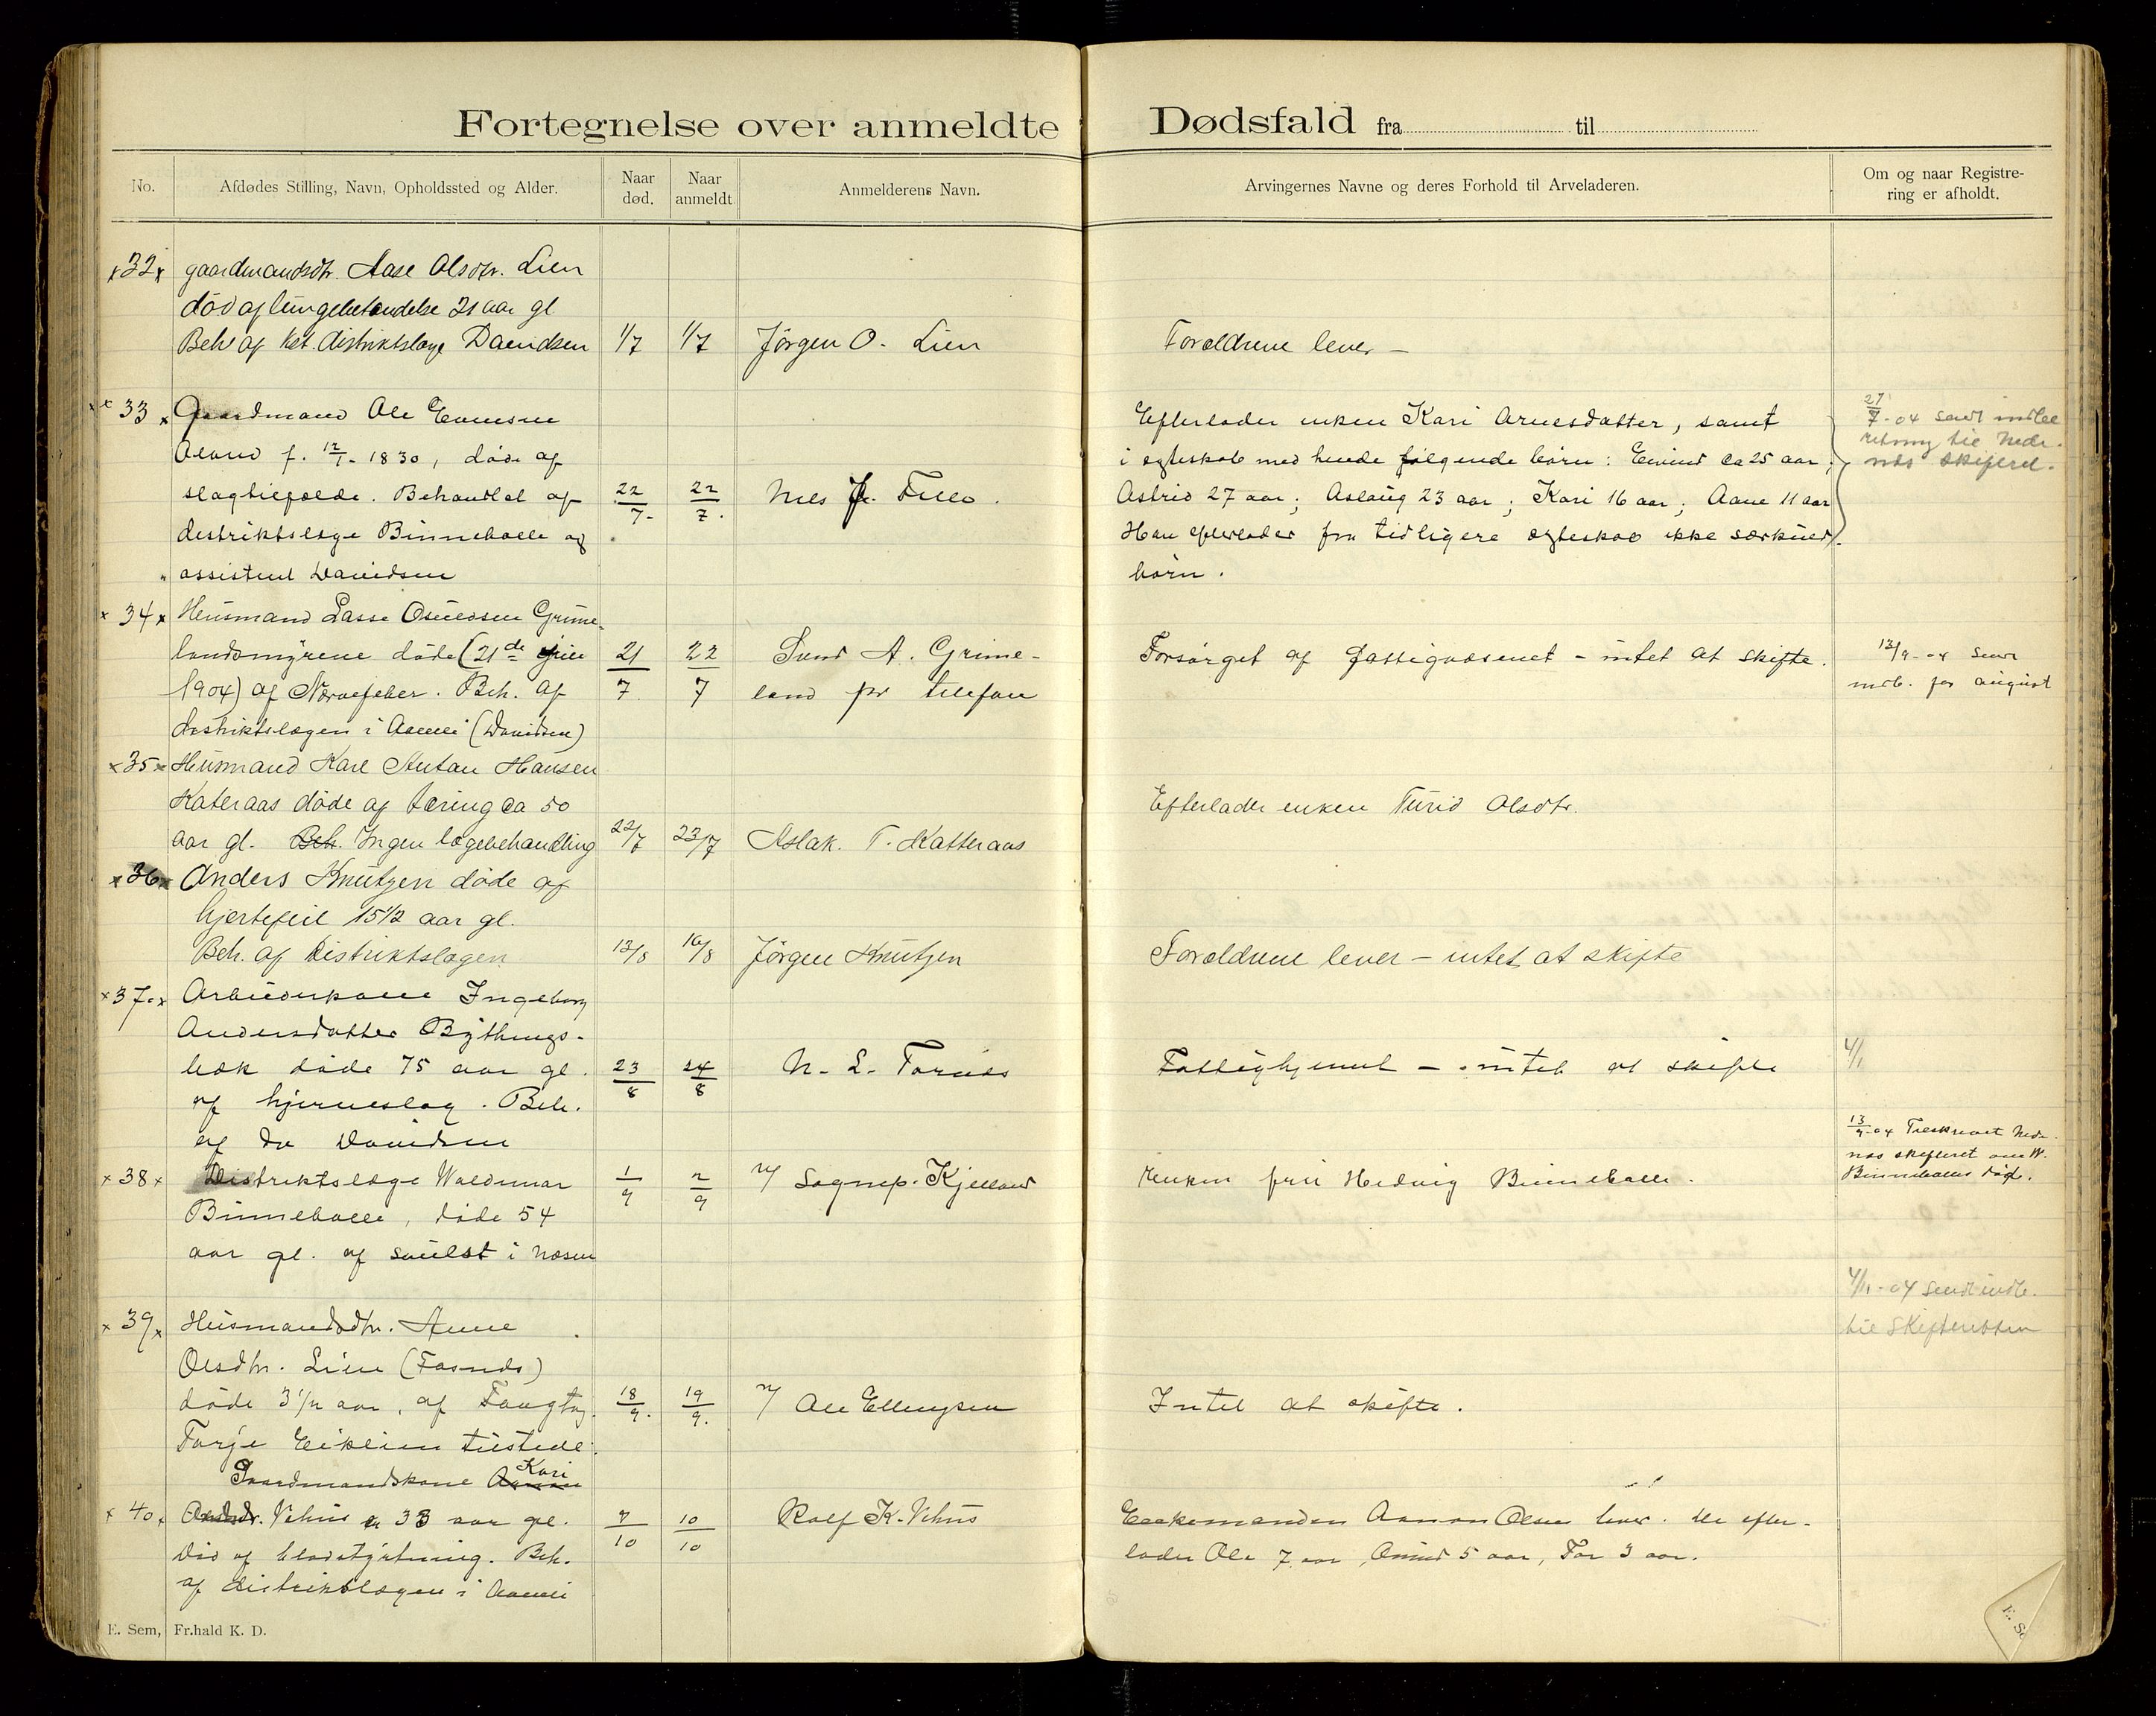 Fortegnelse over anmeldte Dødsfald fra til
No.
Afdødes Stilling, Navn, Opholdssted og Alder.
Naar død.
Naar anmeldt
Anmelderens Navn.
Arvingernes Navne og deres Forhold til Arveladeren.
Om og naar Registre-
ring er afholdt.
x32x gaardmandsdtr. Aase Olsdtr. Lien
død af lungebetændelse 21 aar gl
Beh af kst. distriktslæge Davidsen 1/7 1/7 Jørgen O. Lien Forældrene lever –
x 33 x Gaardmand Ole Evensen Efterlader enken Kari Arnesdatter, samt
27/7-04 sendt indbe
f. 12/1-1830, døde af i egteskab med hende følgende børn: Eivind ca 25 aar;
retning til Nede-
nes skifteret.
slagtilfælde. Behandlet af 22/7- 22/7. Nils Fillo. Astrid 27 aar; Aslaug 23 aar; Kari 16 aar; Aane 11 aar
distriktslæge Binneballe og Han efterlader fra tidligere egteskab ikke særkuld
" assistent Davidsen børn.
x 34 x Husmand Lasse Grime-
landsmyrene døde (21de juli 21/7 22/7 A. Grime- Forsørget af fattigvæsenet – intet at skifte. 12/9-04 sendt
1904) af Nervefeber. Beh. af land pr telefon indb. for august
distriktslægen i Aamli (Davidsen)
x35x Husmand Karl Anton Hansen
Kateraas døde af tæring ca 50 Efterlader enken Turid Olsdtr.
aar gl. Beh. Ingen lægebehandling 22/7 23/7 Aslak. T. Katteraas
x36x Anders Knutzen døde af
hjertefeil 15 1/2 aar gl.
Beh. af Distriktslægen 13/8 16/8 Jørgen Knutzen Forældrene lever – intet at skifte
x37.x Arbeiderkone Ingeborg
Andersdatter
bæk døde 75 aar gl. 23/8 24/8 N. L. Fattighjemmet – intet at skifte 4/1
af hjerneslag. Beh.
af dr Davidsen
13/9-04 Tilskrevet Nede-
nes skifteret om W.
Binneballes død.
x 38 x Distriktslæge Waldemar 1/9 2/9 v/ Sognep. Kjelland Enken fru Hedvig Binneballe.
Binneballe, døde 54
aar gl. af svulst i næsen
4/11-04 sendt indb.
til skifteretten
x 39 x Husmandsdtr. Anne
Olsdtr. Lien
døde 3 1/2 aar, af 18/9. 19/9. v/ Ole Ellingsen Intet at skifte.
Tarje Eiklien tilstede.
Gaardmandskone Kari
x 40 x Vehus 33 aar gl. 7/10 10/10 Rolf K. Vehus Enkemanden Aanon Olsen lever. De efter-
død af blodstyrtning. Beh. lader Ole 7 aar, 5 aar, Tor 3 aar.
af distriktslægen i Aamli
E. Sem, Fr.hald K. D.